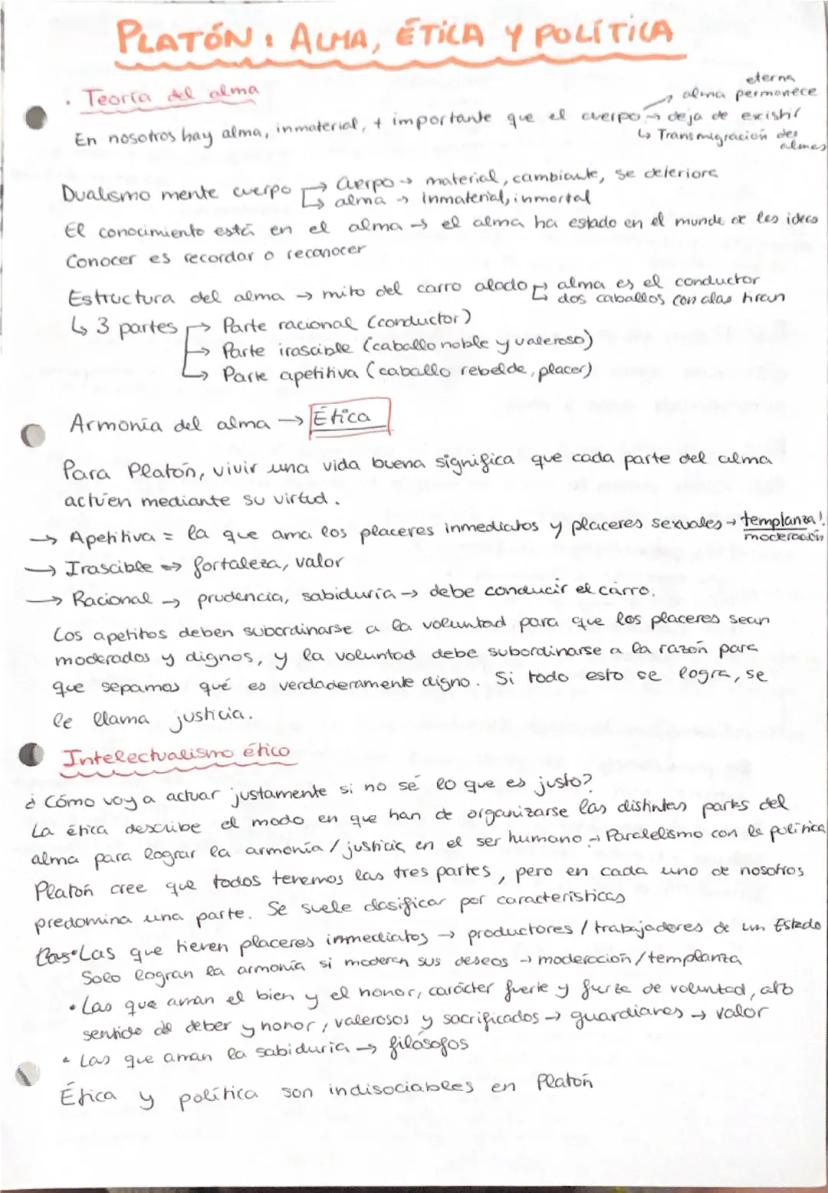 PLATÓN: ALMA, ÉTICA Y POLÍTICA
· Teoría del alma
eterna
alma permanece
En nosotros hay alma, inmaterial, + importante que el cuerpo → deja de existir
↳ Transmigración de almas
Dualismo mente cuerpo → Cuerpo → material, cambiante, se deteriora
↳ alma → inmaterial, inmortal
El conocimiento está en el alma → el alma ha estado en el mundo de las ideas
Conocer es recordar o reconocer
Estructura del alma → mito del carro alado → alma es el conductor
↳ dos caballos con alas tiran
↳ 3 partes → Parte racional (conductor)
→ Parte irascible (caballo noble y valeroso)
↳ Parte apetitiva (caballo rebelde, placer)
Armonía del alma → Ética
Para Platón, vivir una vida buena significa que cada parte del alma
actúen mediante su virtud.
→ Apetitiva = la que ama los placeres inmediatos y placeres sexuales → templanza!
moderación
→ Irascible => fortaleza, valor
→ Racional → prudencia, sabiduría → debe conducir el carro.
Los apetitos deben subordinarse a la voluntad para que los placeres sean
moderados y dignos, y la voluntad debe subordinarse a la razón para
que sepamos qué es verdaderamente digno. Si todo esto se logra, se
le llama justicia.
Intelectualismo ético
¿Cómo voy a actuar justamente si no sé lo que es justo?
La ética describe el modo en que han de organizarse las distintas partes del
alma para lograr la armonía/justicia en el ser humano → Paralelismo con la política
Platón cree que todos tenemos las tres partes, pero en cada uno de nosotros
predomina una parte. Se suele clasificar por características
• Las que tienen placeres inmediatos → productores/trabajadores de un Estado
Solo logran la armonía si moderan sus deseos → moderación/templanza
• Las que aman el bien y el honor, carácter fuerte y fuerza de voluntad, alto
sentido de deber y honor, valerosos y sacrificados → guardianes → valor
• Las que aman la sabiduría → filósofos
Ética y política son indisociables en Platón